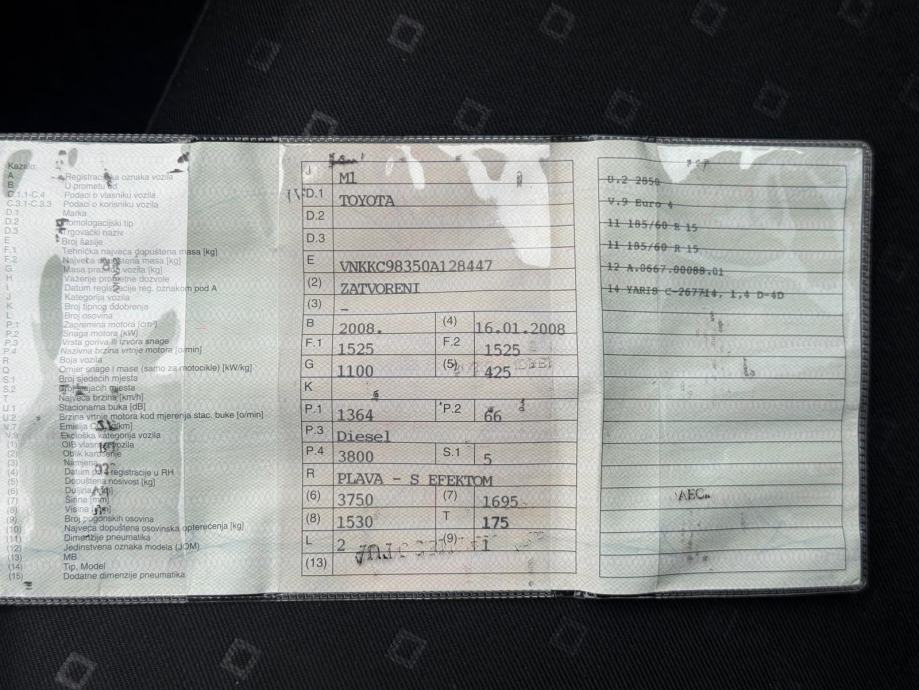 Kazalo:
A Registracijska oznaka vozila
B U prometu od
C.1.1-C.4 Podaci o vlasniku vozila
C.3.1-C.3.3 Podaci o korisniku vozila
D.1 Marka
D.2 Homologacijski tip
D.3 Trgovački naziv
E Broj šasije
F.1 Tehnička najveća dopuštena masa [kg]
F.2 Najveća dopuštena masa [kg]
G Masa praznog vozila [kg]
H Važenje prometne dozvole
I Datum registracije reg. oznakom pod A
J Kategorija vozila
K Broj tipnog odobrenja
L Broj osovina
P.1 Zapremina motora [cm³]
P.2 Snaga motora [kW]
P.3 Vrsta goriva ili izvora snage
P.4 Nazivna brzina vrtnje motora [o/min]
R Boja vozila
Q Omjer snage i mase (samo za motocikle) [kW/kg]
S.1 Broj sjedećih mjesta
S.2 Broj stajaćih mjesta
T Najveća brzina [km/h]
U.1 Stacionarna buka [dB]
U.2 Brzina vrtnje motora kod mjerenja stac. buke [o/min]
V.7 Emisija [g/km]
V.9 Ekološka kategorija vozila
(1) OIB vlasnika vozila
(2) Oblik karoserije
(3) Namjena
(4) Datum prve registracije u RH
(5) Dopuštena nosivost [kg]
(6) Duljina [mm]
(7) Širina [mm]
(8) Visina [mm]
(9) Broj pogonskih osovina
(10) Najveća dopuštena osovinska opterećenja [kg]
(11) Dimenzije pneumatika
(12) Jedinstvena oznaka modela (JOM)
(13) MB
(14) Tip, Model
(15) Dodatne dimenzije pneumatika
J M1
D.1 TOYOTA
D.2
D.3
E VNKKC98350A128447
(2) ZATVORENI
(3) –
B 2008. (4) 16.01.2008
F.1 1525 F.2 1525
G 1100 (5) 425
K
P.1 1364 P.2 66
P.3 Diesel
P.4 3800 S.1 5
R PLAVA - S EFEKTOM
(6) 3750 (7) 1695
(8) 1530 T 175
L 2 (9) 1
(13)
U.2 2850
V.9 Euro 4
11 185/60 R 15
11 185/60 R 15
12 A.0667.00088.01
14 YARIS C-267714, 1,4 D-4D